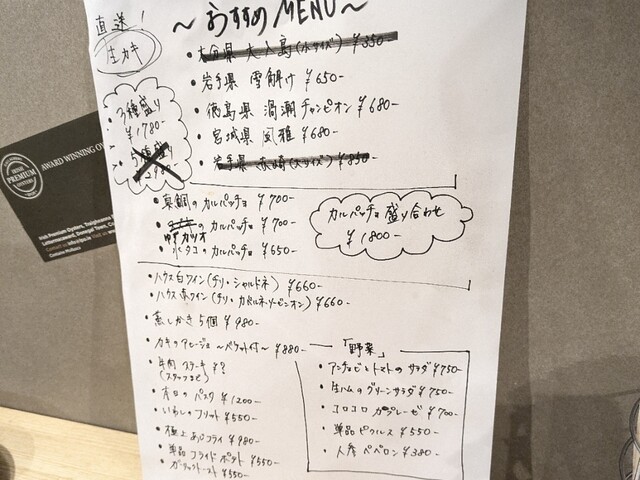 直送!
生カキ
〜おすすめMENU〜
・大分県 大入島(小サイズ) ¥350-
・岩手県 雪解け ¥650-
・徳島県 渦潮チャンピオン ¥680-
・宮城県 風雅 ¥680-
・岩手県 赤崎(大サイズ) ¥850-
・3種盛り
¥1780-
・5種盛
¥2980-
・真鯛のカルパッチョ ¥700-
・のカルパッチョ ¥700-
・水タコのカルパッチョ ¥650-
カルパッチョ盛り合わせ
¥1800-
・ハウス白ワイン(チリ・シャルドネ) ¥660-
・ハウス赤ワイン(チリ・カベルネ・ソービニオン) ¥660-
・蒸しかき5個 ¥980-
・カキのアヒージョ 〜バケット付〜 ¥880-
・牛肉 ステーキ ¥?
(スタッフまで)
・本日のパスタ ¥1200-
・いわしのフリット ¥550-
・極上あじフライ ¥980-
・単品フライドポテト ¥550-
・ガーリックトースト ¥550-
「野菜」
・アンチョビとトマトのサラダ ¥750-
・生ハムのグリーンサラダ ¥750-
・コロコロカプレーゼ ¥700-
・単品ピクルス ¥550-
・人参ペペロン ¥380-
PREMIUM
AWARD WINNING
Irish Premium Oysters, Traighenna
Letterkenny, Donegal Town, Co